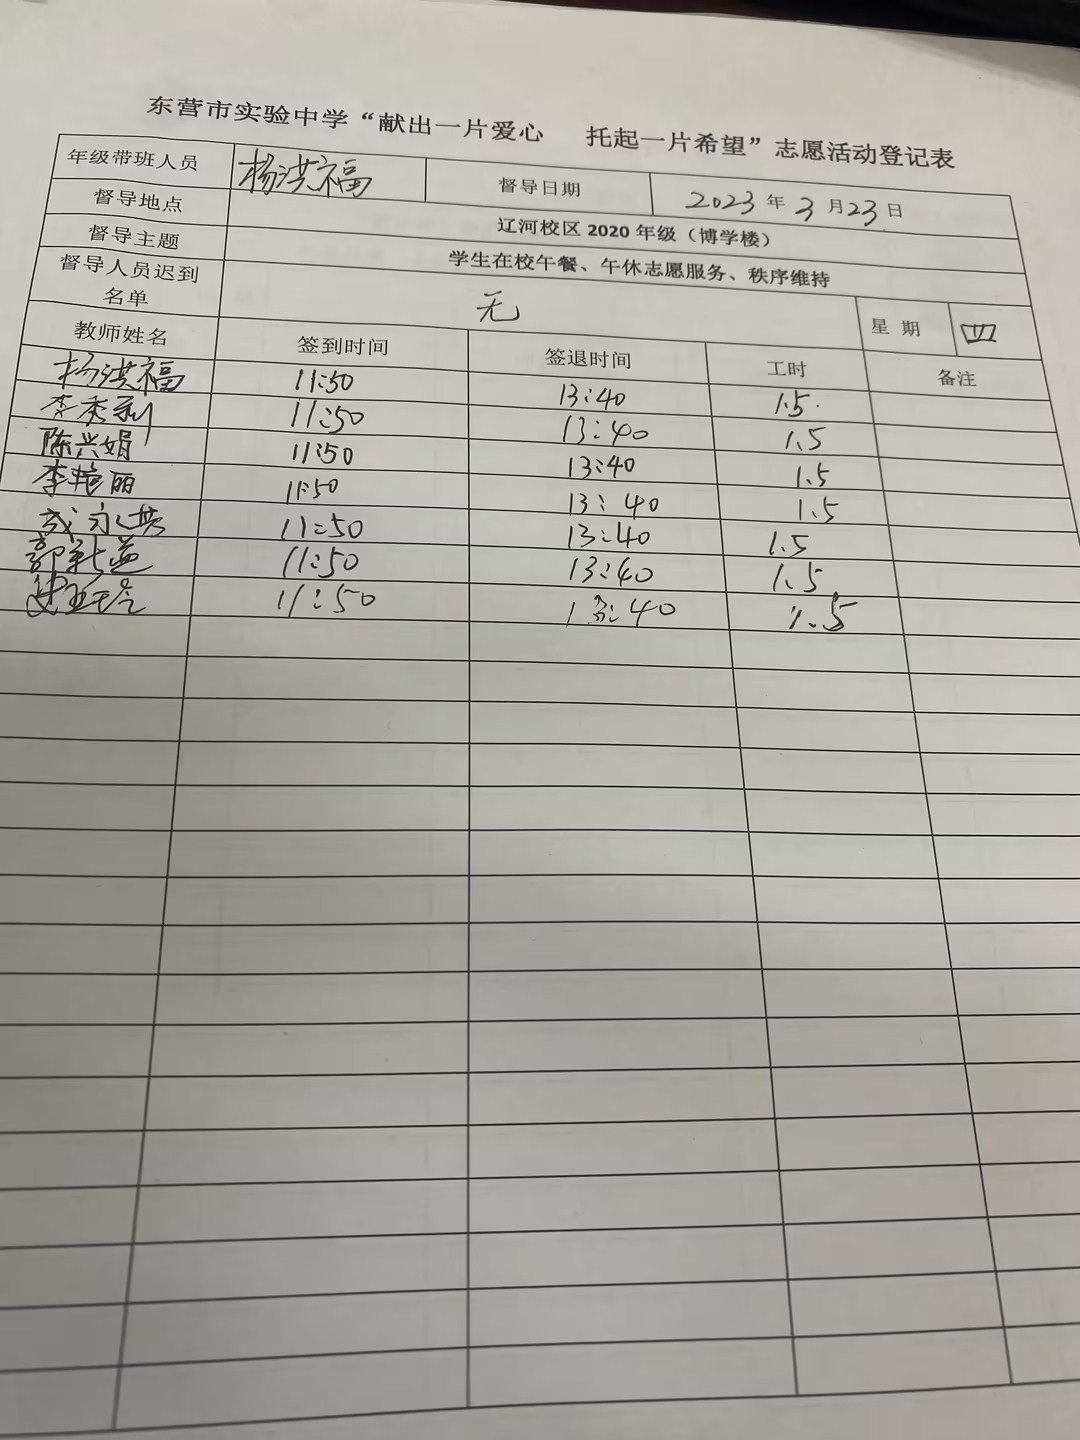 东营市实验中学“献出一片爱心 托起一片希望”志愿活动登记表
年级带班人员 杨洪福 督导日期 2023年3月23日
督导地点 辽河校区2020年级（博学楼）
督导主题 学生在校午餐、午休志愿服务、秩序维持
督导人员迟到名单 无 星期 四
教师姓名 签到时间 签退时间 工时 备注
杨洪福 11:50 13:40 1.5
李秀利 11:50 13:40 1.5
陈兴娟 11:50 13:40 1.5
李艳丽 11:50 13:40 1.5
11:50 13:40 1.5
郭 11:50 13:40 1.5
11:50 13:40 1.5